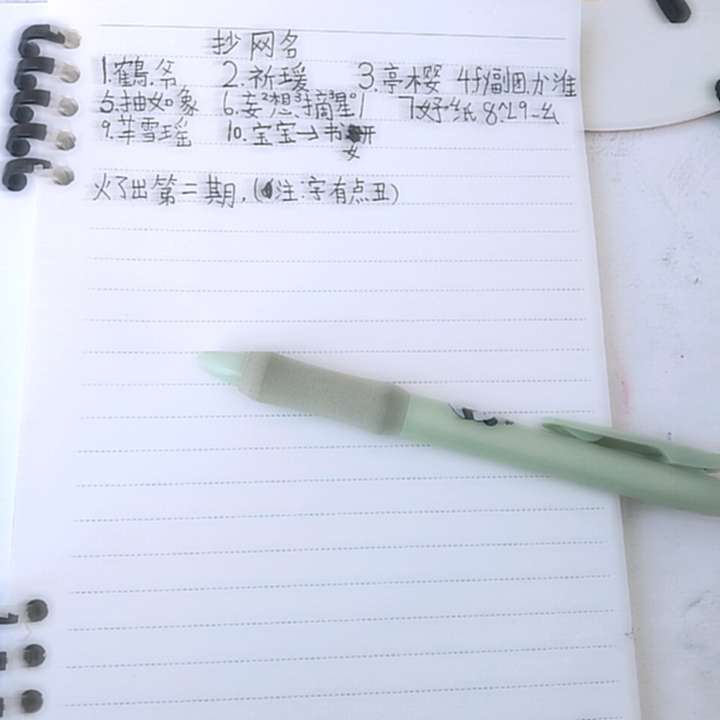 抄网名
1.鹤爷 2.祈瑗 3.亭樱 4f福团.か淮
5.抽如象 6.妄²想.³摘³星°/ 7好纸 8
9.苹雪瑶 10.宝宝→书妍
火了出第二期,(注:字有点丑)